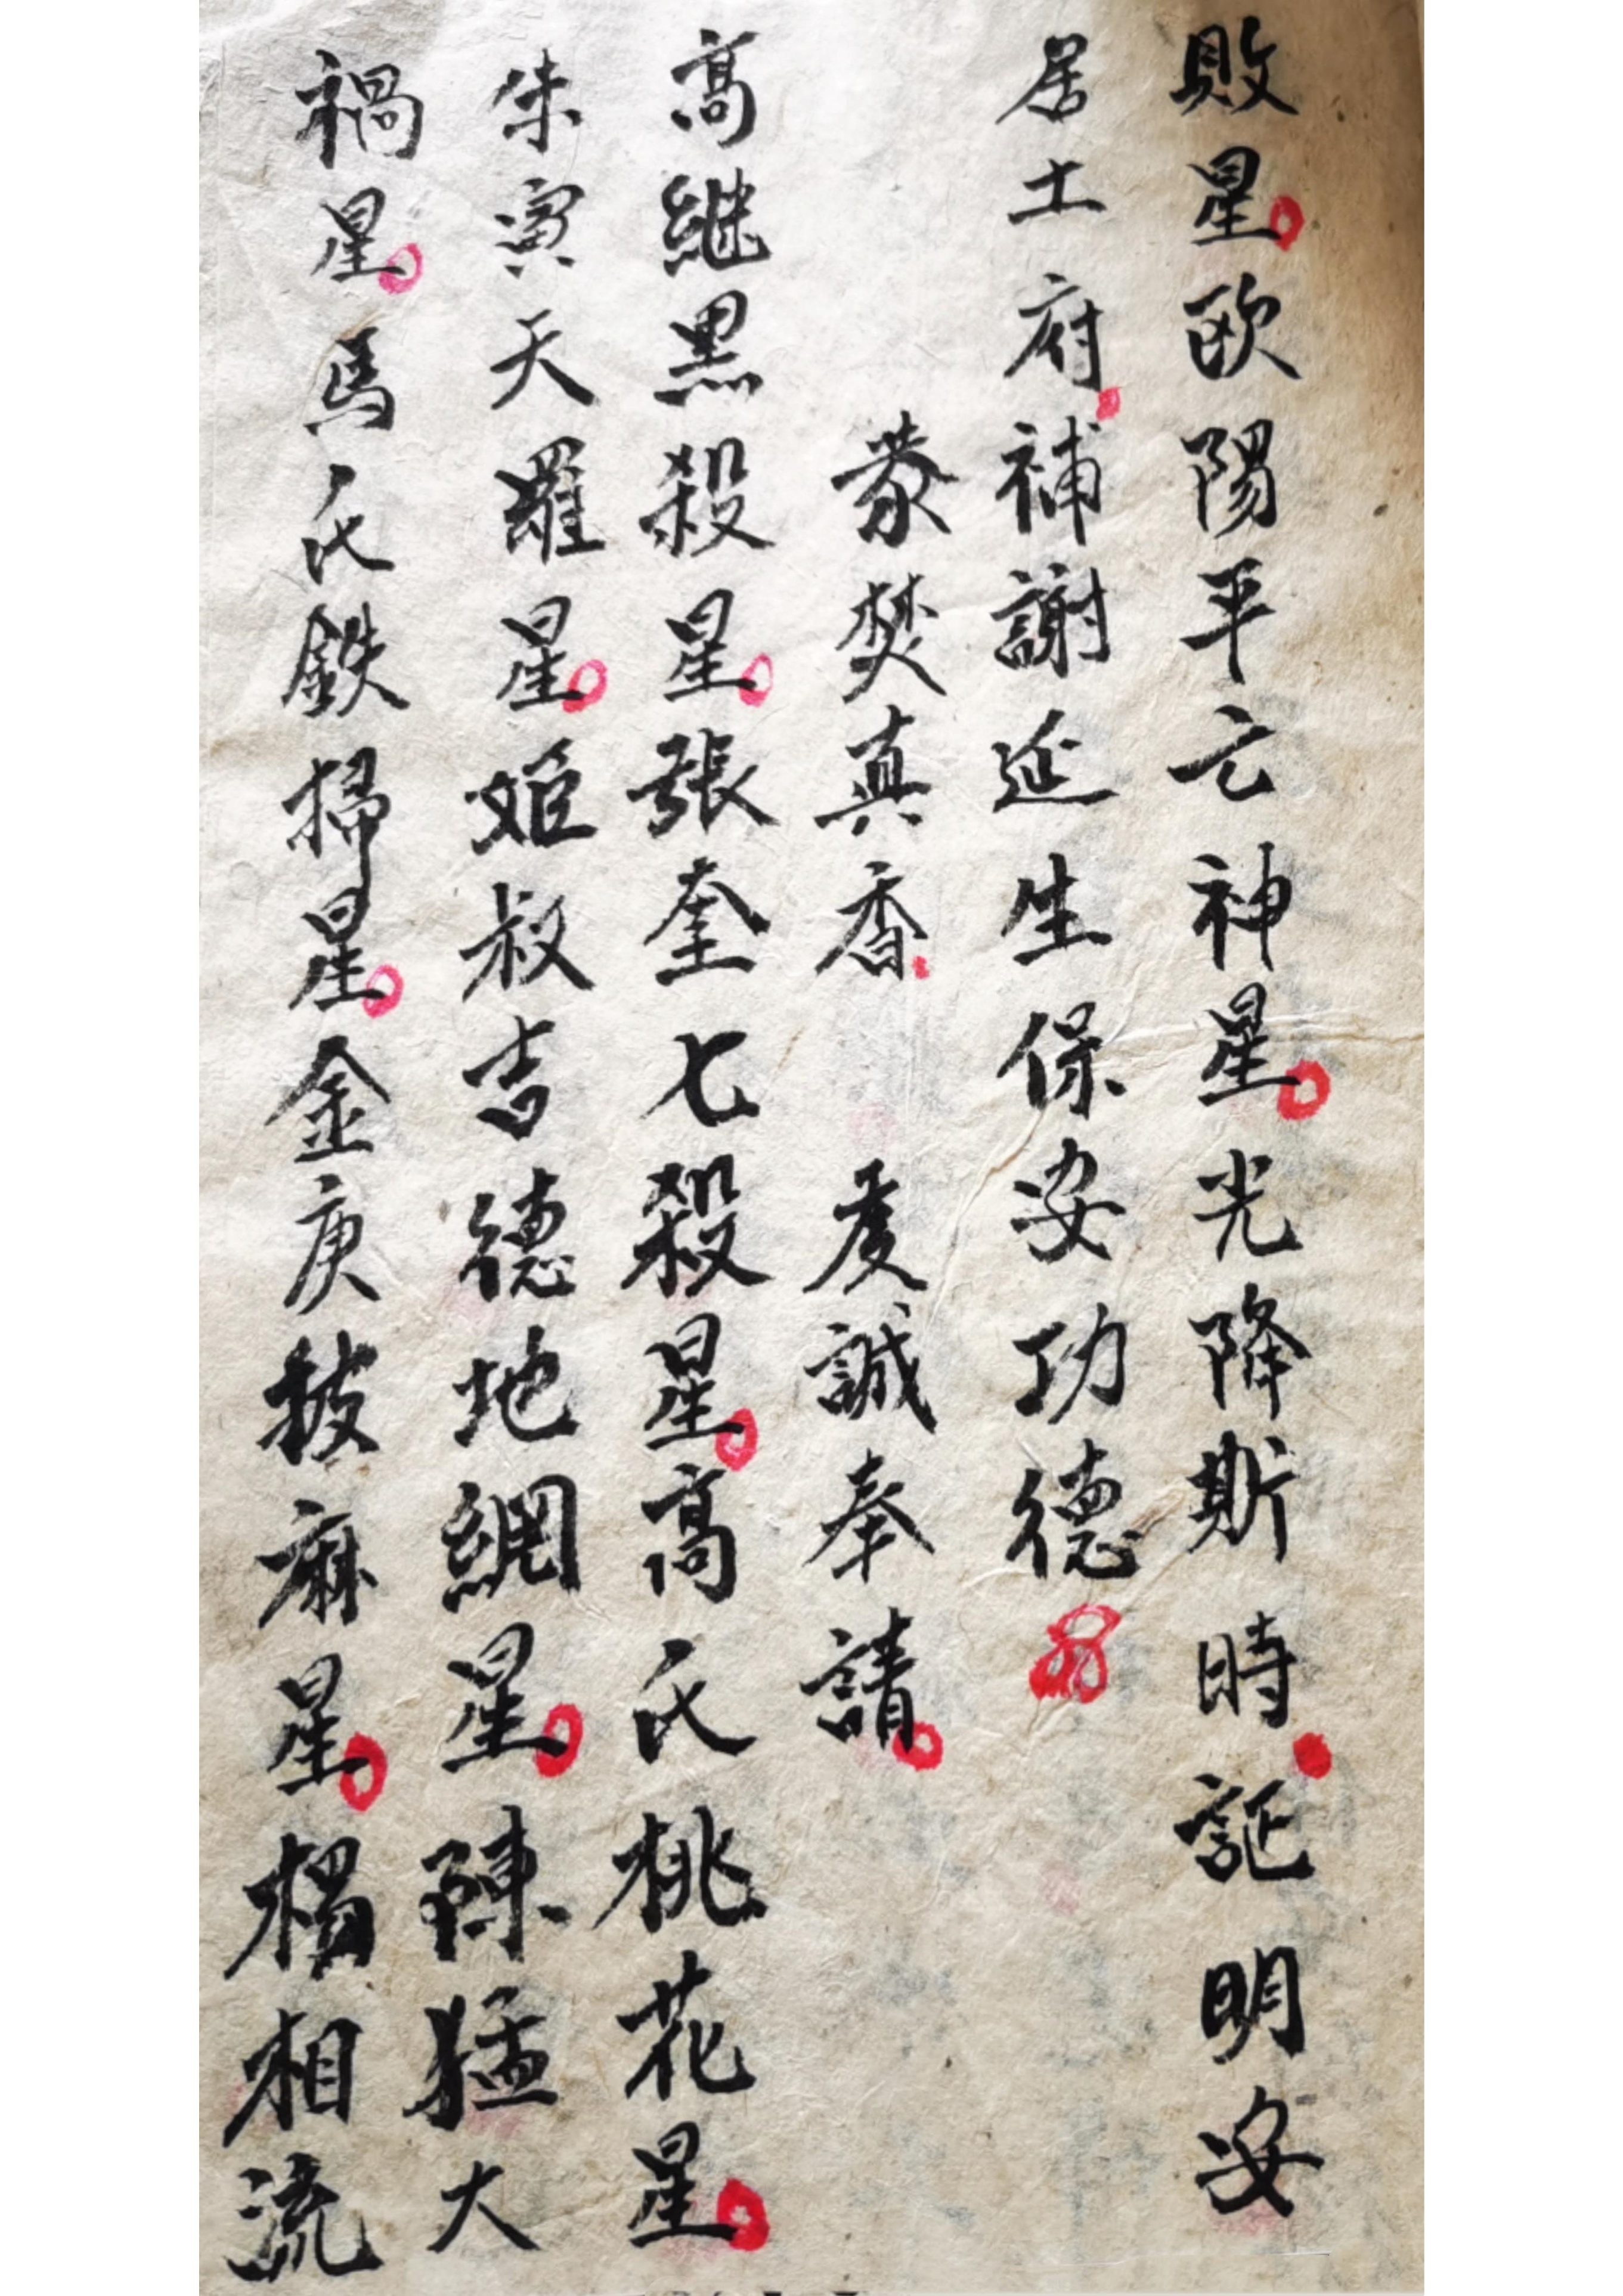 敗星。欧陽平亡神星。光降斯時.証明安
居土府.補謝延生保安功德
蒙焚真香.虔誠奉請。
高継黒殺星。張奎七殺星。高氏桃花星。
朱寅天羅星。姬叔吉德地網星。陳猛大
禍星。馬氏鉄掃星。金庚披麻星。楊相流